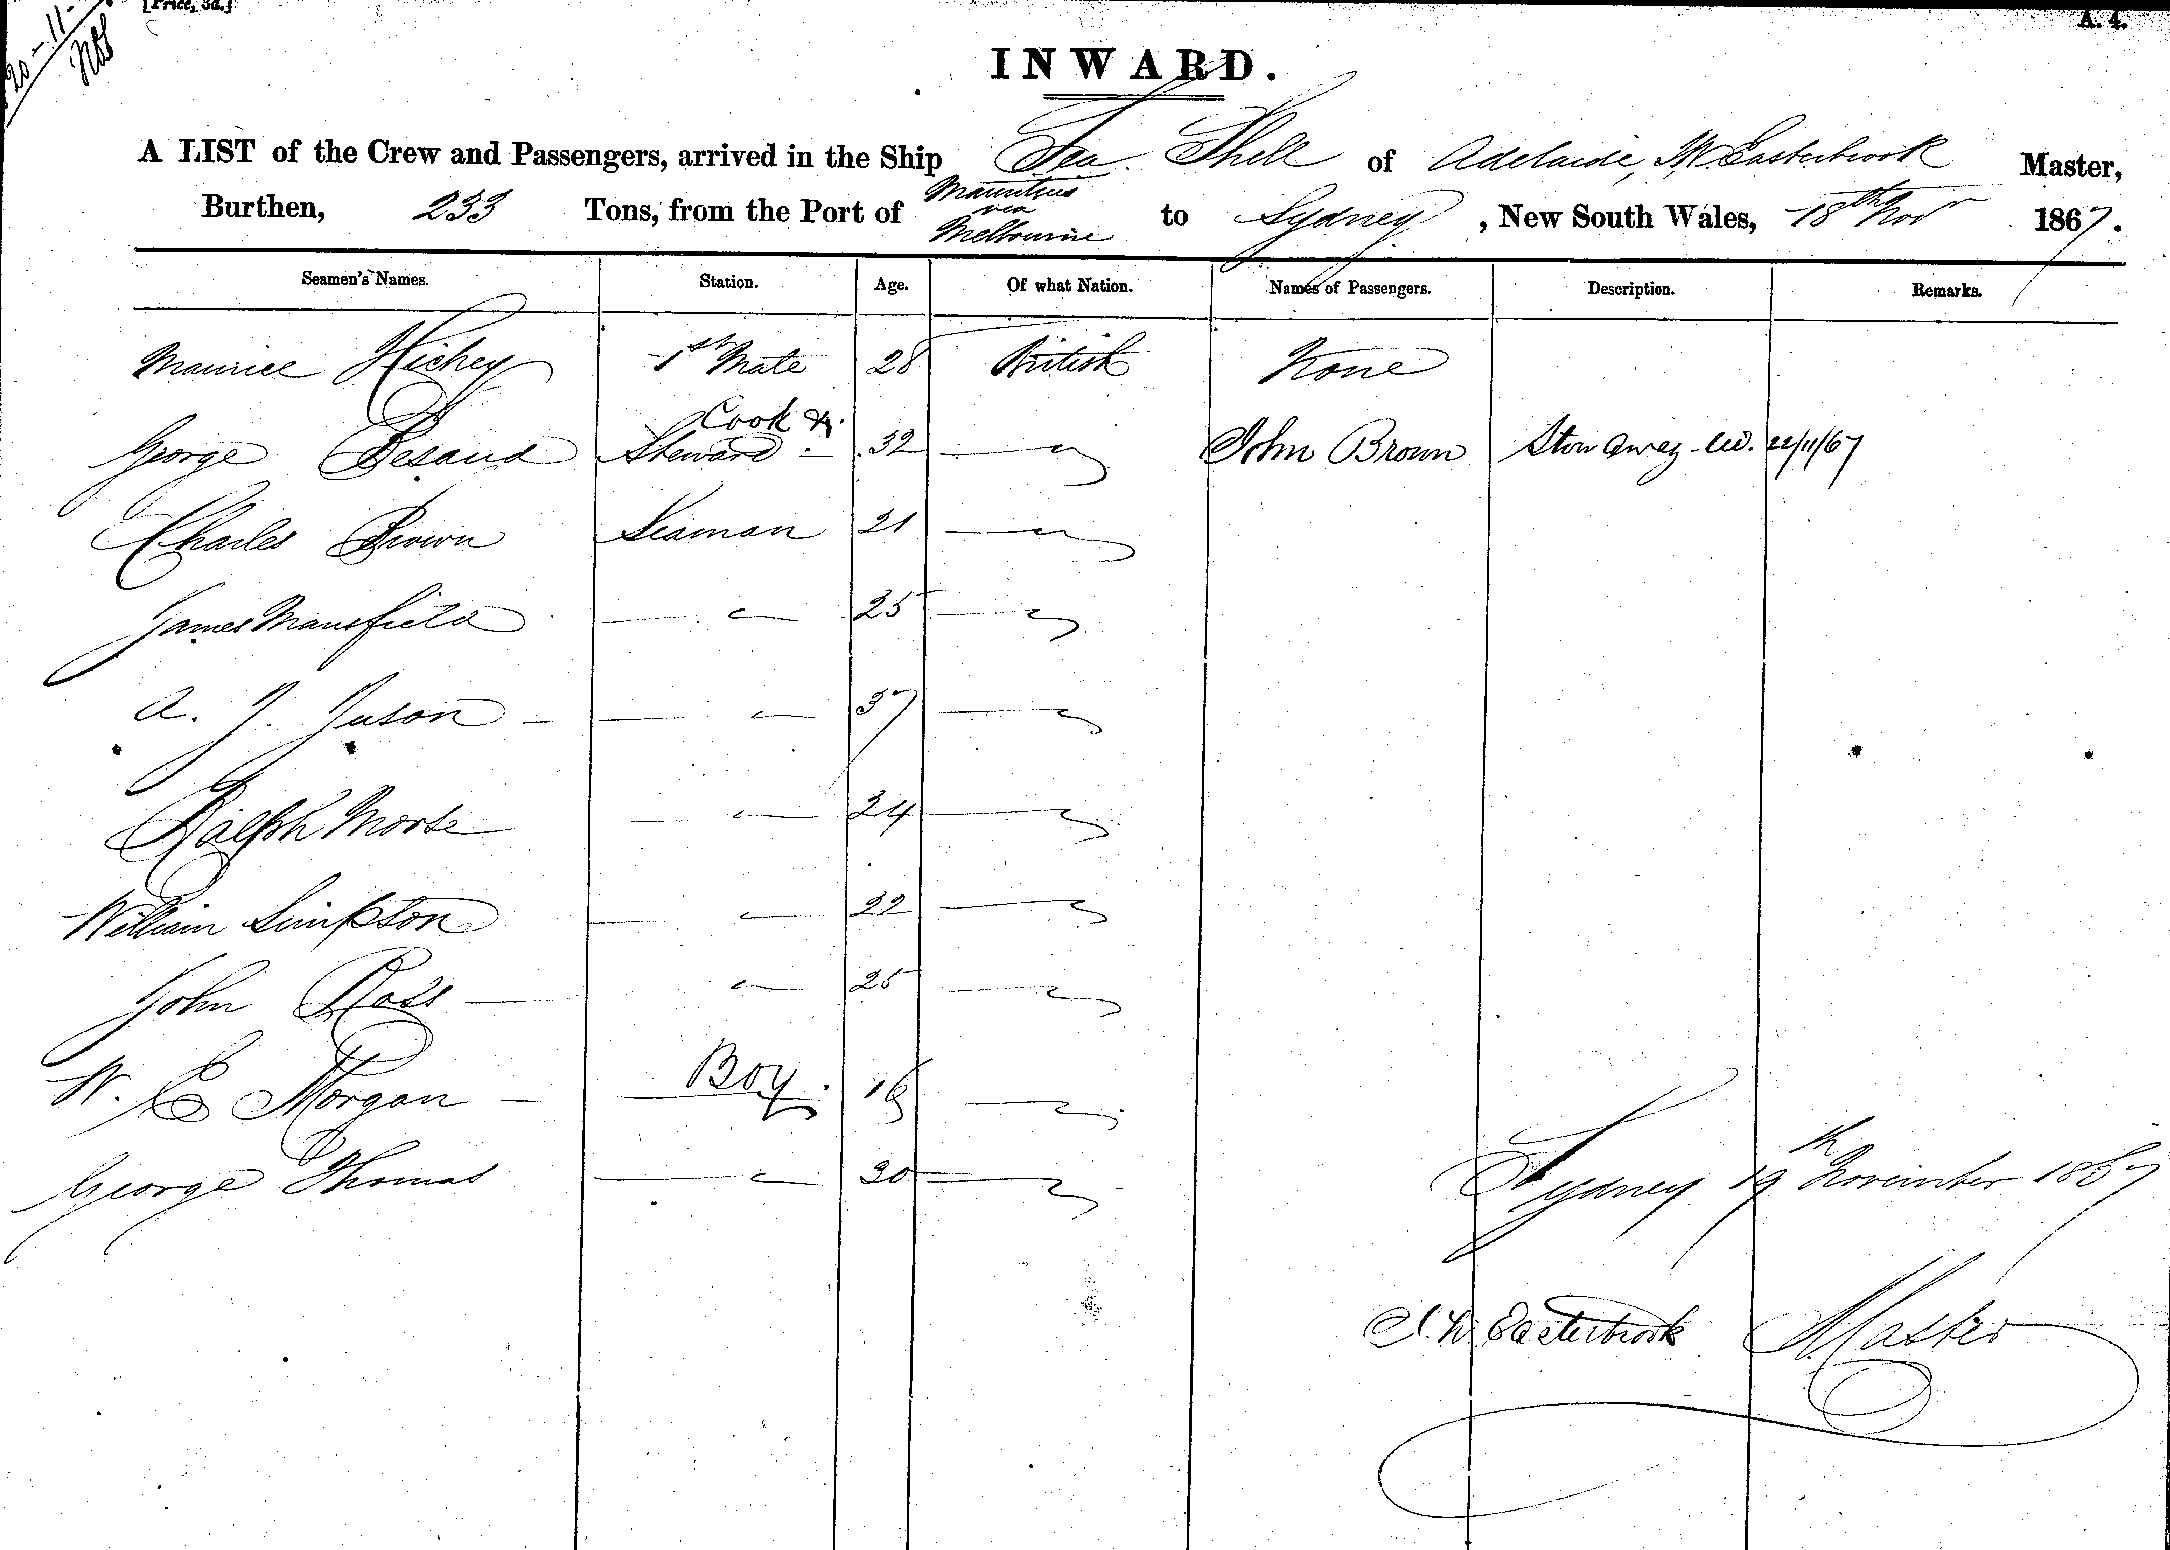 [Price, 3d.]
A. 4.
20-11-
INWARD.
A LIST of the Crew and Passengers, arrived in the Ship Sea Shell of Adelaide, Easterbrook Master,
Burthen, 233 Tons, from the Port of Mauritius via Melbourne to Sydney, New South Wales, 18th Novr 1867.
Seamen's Names. Station. Age. Of what Nation. Names of Passengers. Description. Remarks.
Maurice Hickey 1st Mate 28 British None
George Besaud Cook & Steward 32 — " John Brown Stow away 22/11/67
Charles Brown Seaman 21 — "
James Mansfield — " 25 — "
A. J. Juson — — " 37 — "
Ralph Morse — " 24 — "
William Simpson — " 22 — "
John Ross — " 25 — "
W. E Morgan — Boy. 16 — "
George Thomas — " 30 — "
Sydney 19th November 1867
Easterbrook Master